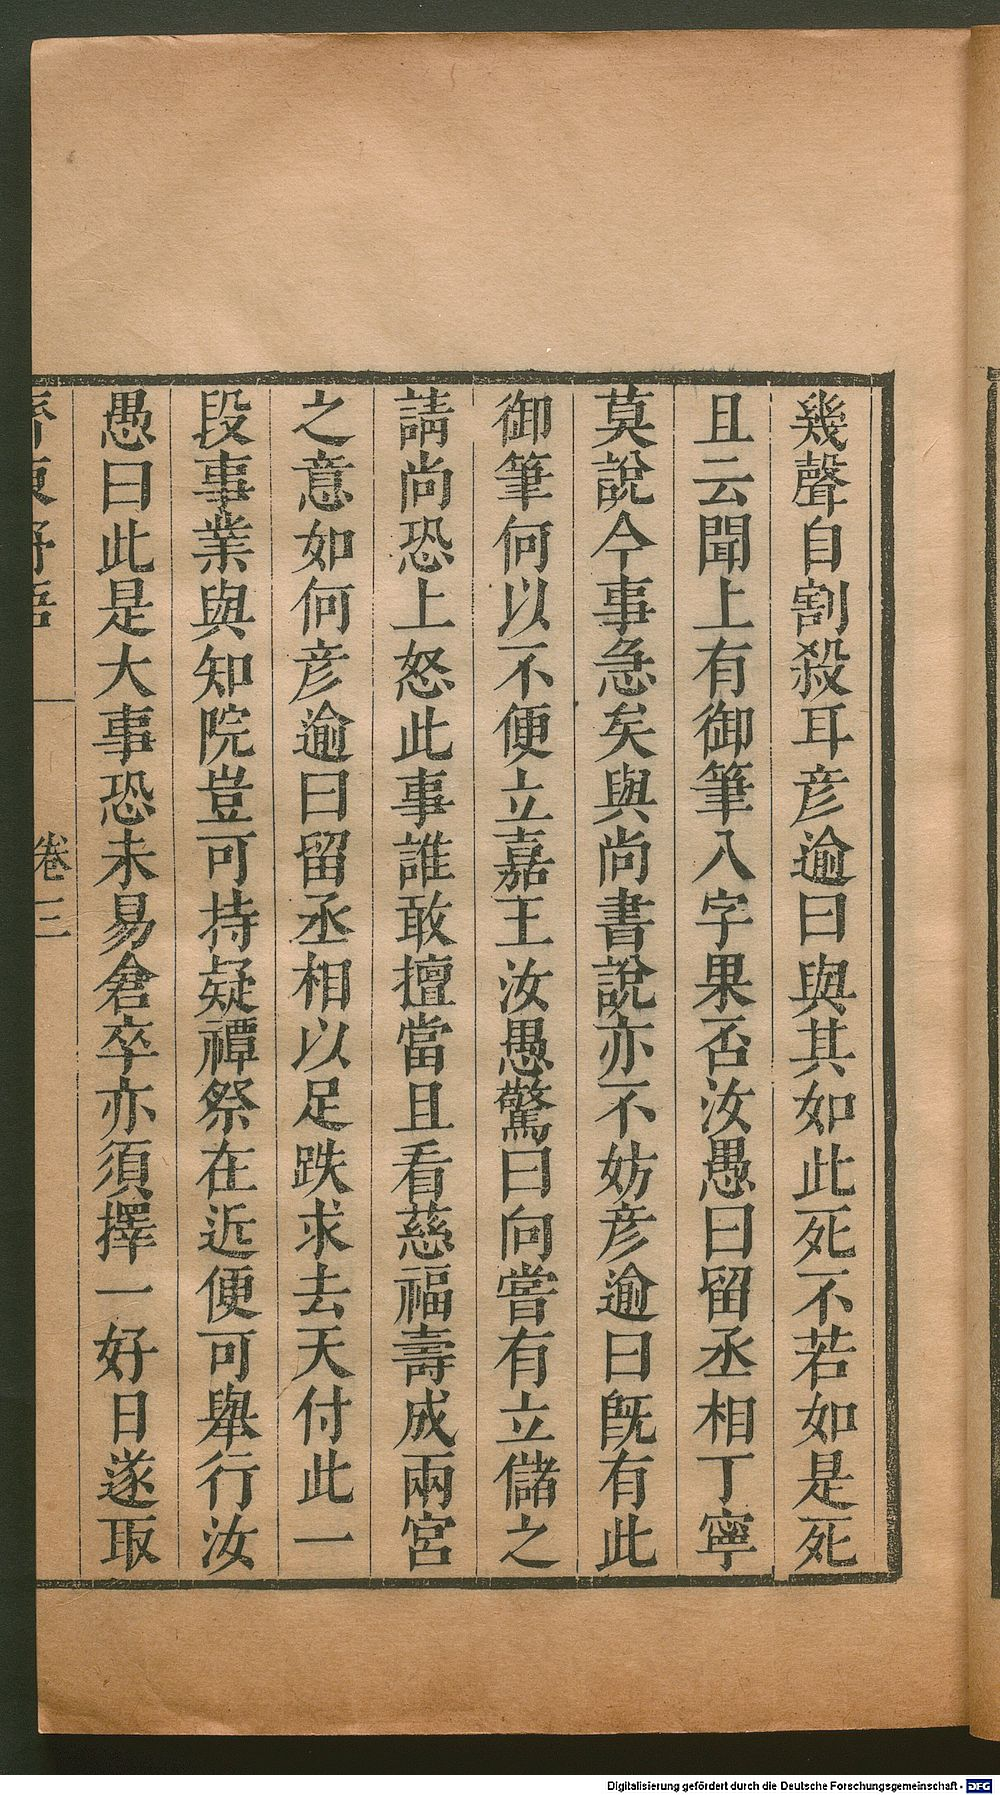 幾聲自割殺耳彦逾曰與其如此死不若如是死
且云聞上有御筆八字果否汝愚曰留丞相丁寧
莫說今事急矣與尚書說亦不妨彦逾曰旣有此
御筆何以不便立嘉王汝愚驚曰向嘗有立儲之
請尚恐上怒此事誰敢擅當且看慈福壽成兩宮
之意如何彦逾曰留丞相以足跌求去天付此一
段事業與知院豈可持疑禫祭在近便可舉行汝
愚曰此是大事恐未易倉卒亦須擇一好日遂取
齊東野語
卷三
Digitalisierung gefördert durch die Deutsche Forschungsgemeinschaft - DFG